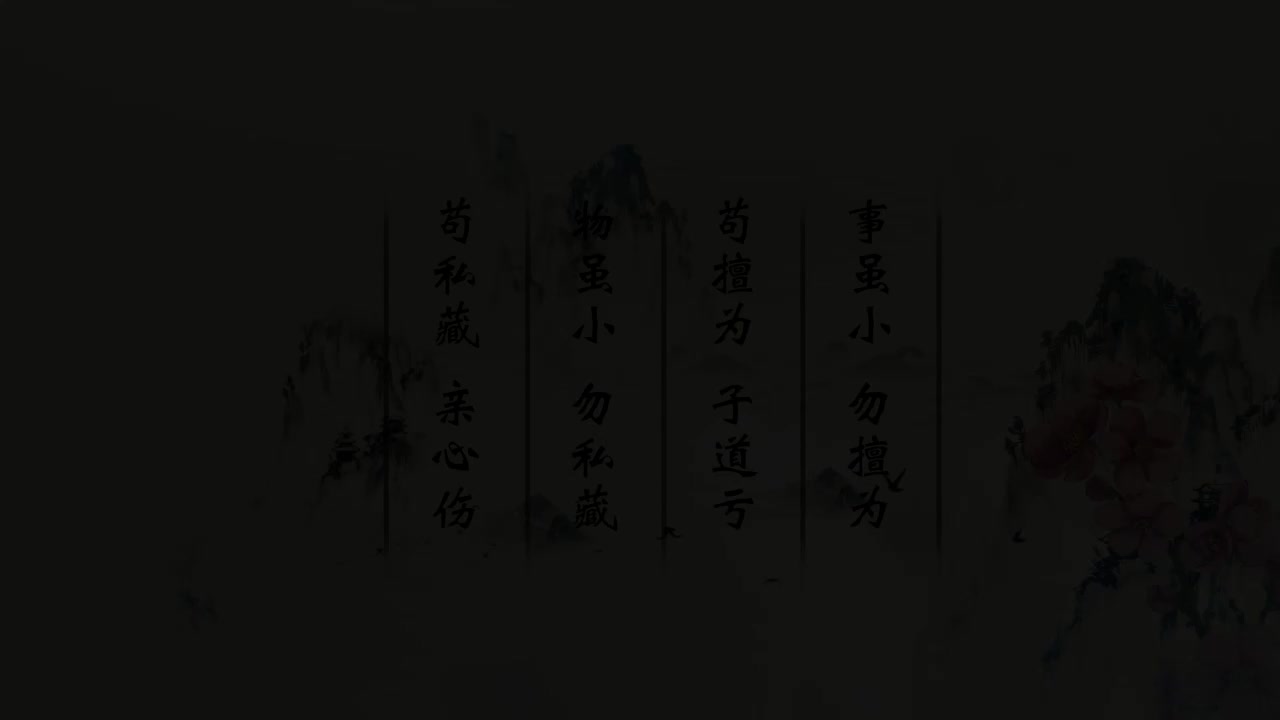 事虽小 勿擅为
苟擅为 子道亏
物虽小 勿私藏
苟私藏 亲心伤